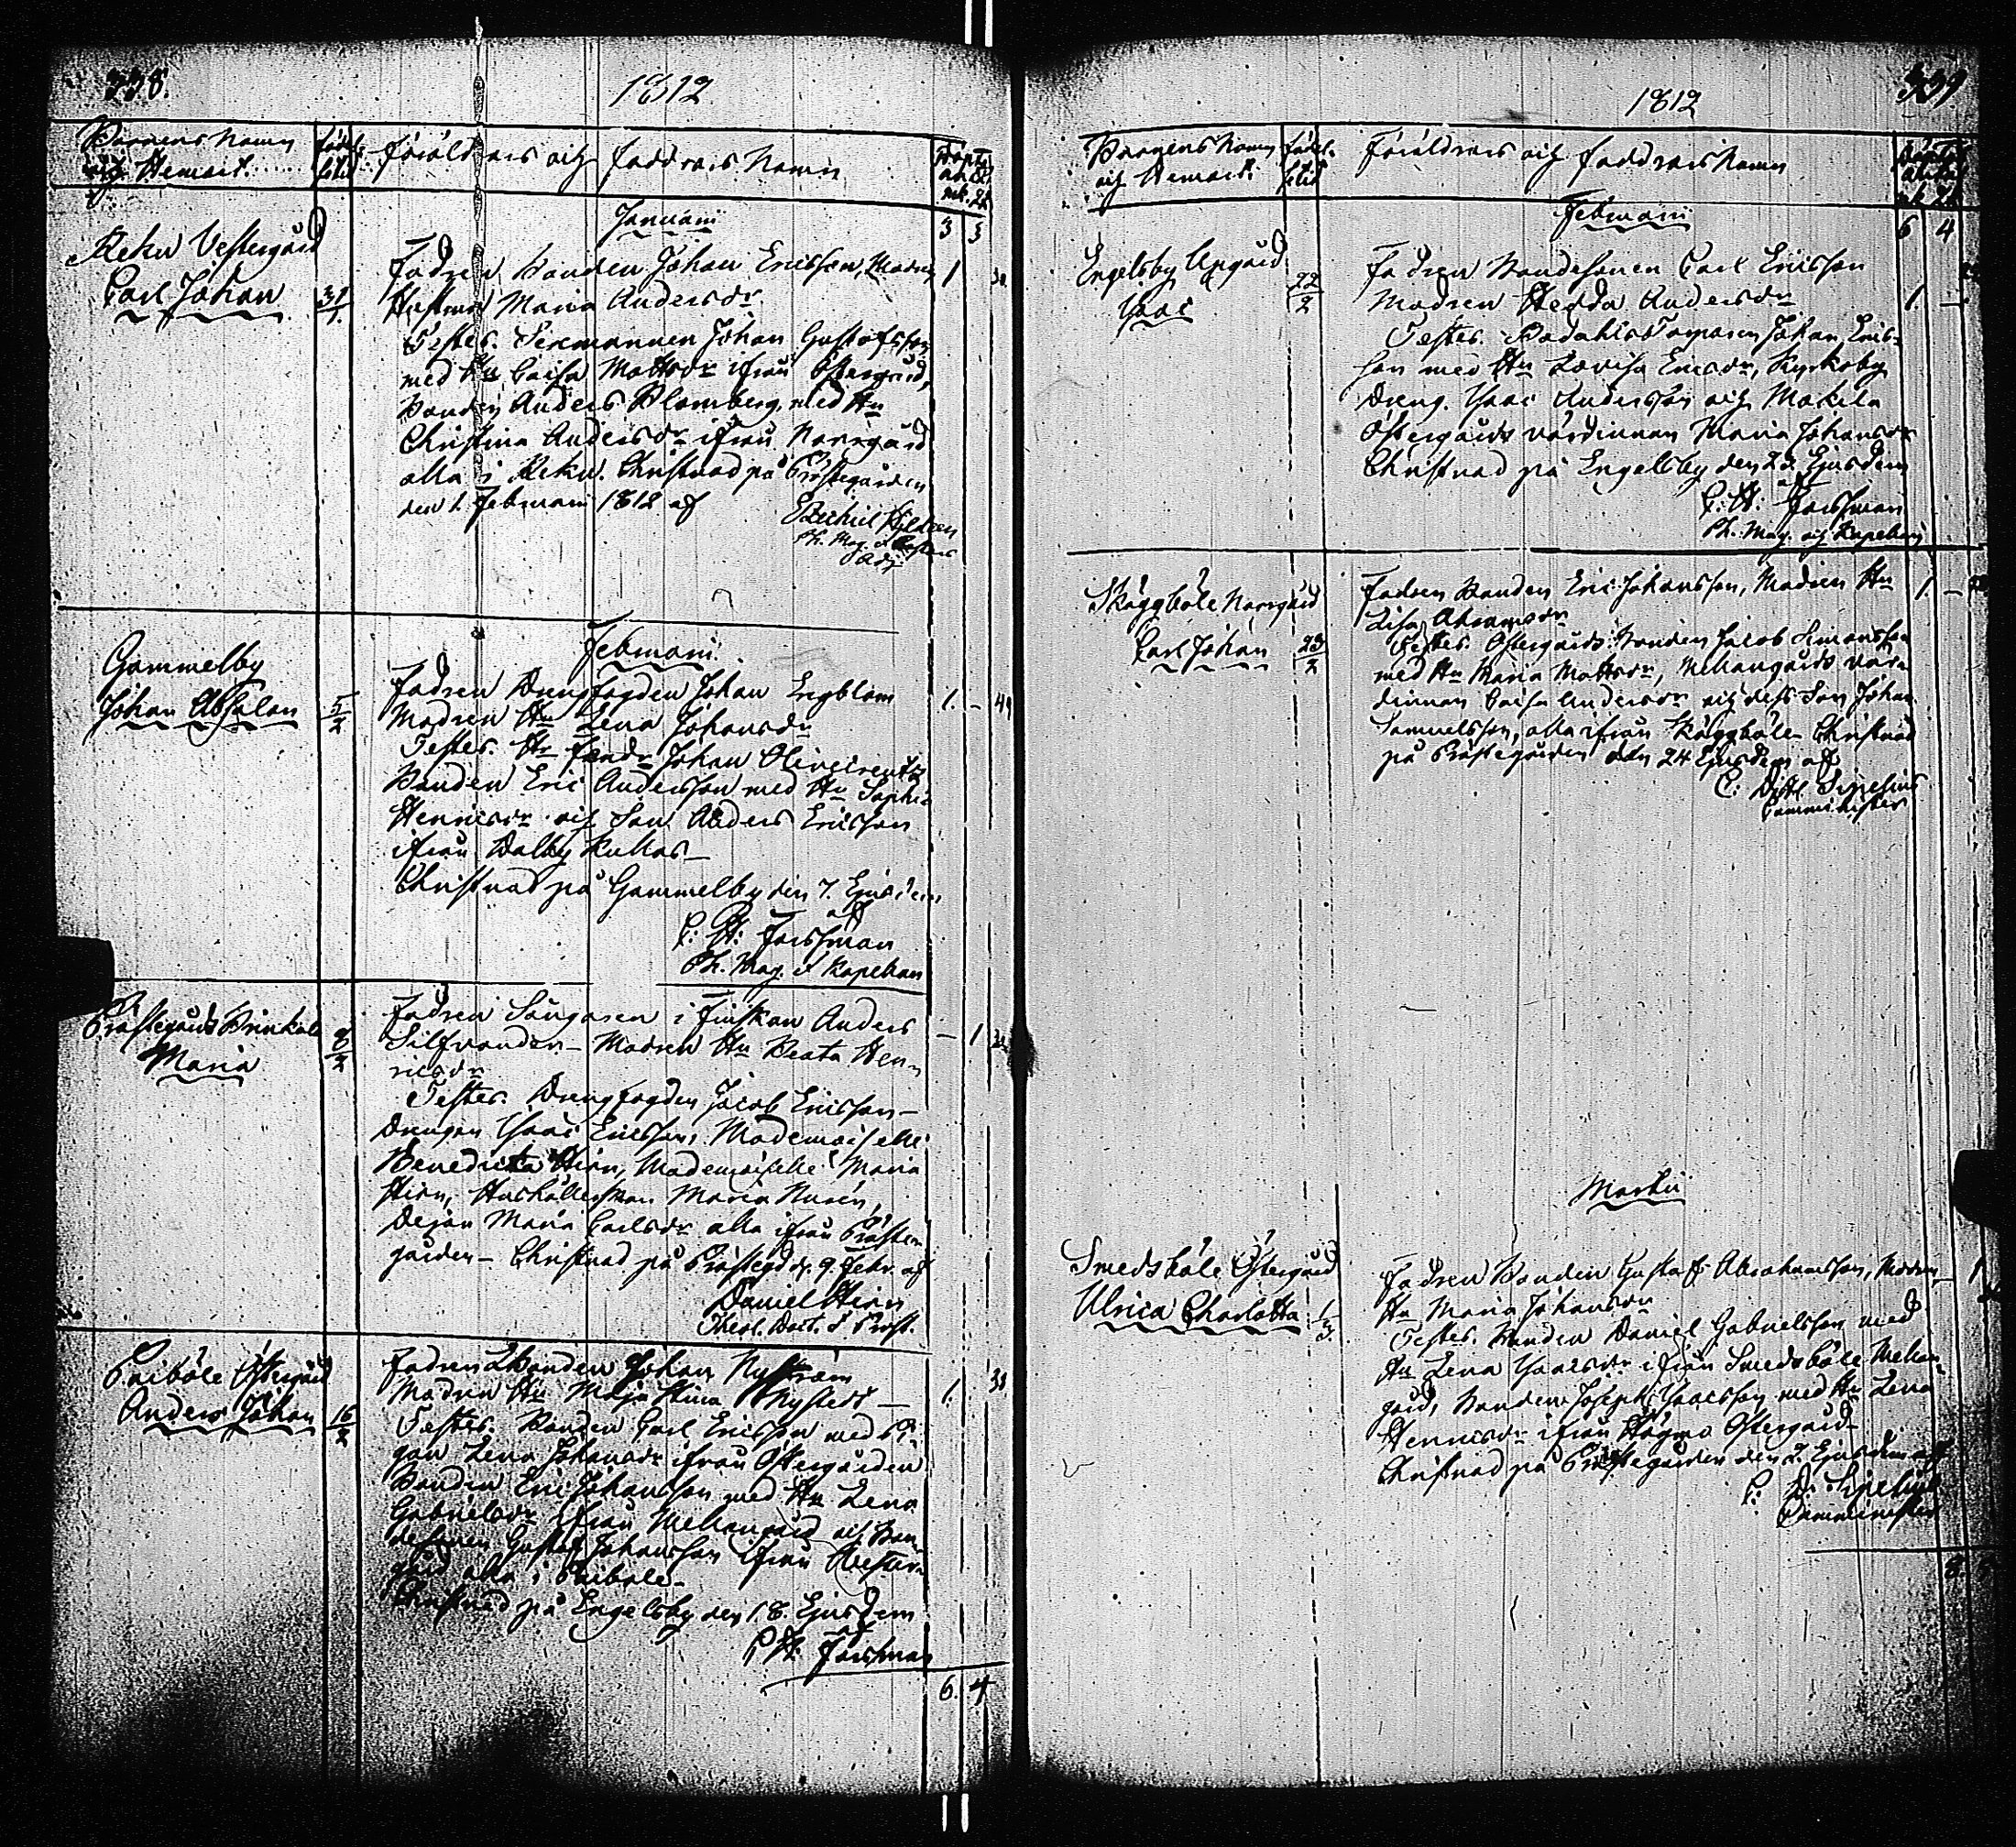 338.
1812
Barnens Namn
och Hemvist.
födelse
tid
Föräldrars och faddrars Namn
Januarii
3 3
Reku Vestergård
Carl Johan
31/1.
Fadren Bonden Johan Ericsson, Modren
Hustrun Maria Andersdr
Testes. Sexmannen Johan Gustafsson
med Hu Caisa Mattsdr ifrån Östergård,
Bonden Anders Blomberg med Hu
Christina Andersdr ifrån Norrgård
alla i Reku. Christnad på Prästegården
den 1. Februarii 1812 af
Ezechiel
Ph. Mag.
Adj.
1
Februarii
Gammelby
Johan Absalon
5/2
Fadren Drengfogden Johan Engblom
Modren Hu Lena Johansdr
Testes. Hr Fendr. Johan Oliveireutz
Bonden Eric Andersson med Hu Sophia
Henricsdr och Son Anders Ericsson
ifrån Dalby Kullas—
Christnad på Gammelby den 7. Ejusdem
af
C: H: Forssman
Ph. Mag. & Kapellan
1. -
Prästegårds Brinkala
Maria
8/2
Fadren Sångaren i Finskan Anders
Silfvander— Modren Hu Beata Hen-
ricsdr
Testes. Drengfogden Jacob Ericsson—
Drengen Isaac Ericsson, Mademoiselle
Benedicta Hirn, Mademoiselle Maria
Hirn, Hushållerskan Maria Nurén,
Dejan Maria Carlsdr alla ifrån Präste-
gården— Christnad på Prästegd d. 9. Febr. af
Daniel Hirn
Theol. Doct. & Prost.
- 1
Paiböle Östergård
Anders Johan
16/2
Fadren Bonden Johan Nyström
Modren Hu Maja Stina Nystedt—
Testes. Bonden Carl Ericsson med Pi-
gan Lena Johansdr ifrån Östergården
Bonden Eric Johansson med Hu Lena
Gabrielsdr ifrån Mellangård och Bon-
desonen Gustaf Johansson ifrån Vester-
gård alla i Paibole—
Christnad på Engelsby den 18. Ejusdem
af
C H: Forssman
1.
6. 4
339
1812
Barnens Namn
och Hemvist.
födelse
tid
Föräldrars och faddrars Namn
Februarii
6 4
Engelsby Uppgård
Isaac
22/2
Fadren Bondesonen Carl Ericsson
Modren Hedda Andersdr
Testes. Johan Erics-
son med Hu Lovisa Ericsdr, Kyrkoby
Dreng. Isaac Andersson och Makila
Östergårds värdinnan Maria Johansdr
Christnad på Engelsby den 23. Ejusdem
af
C: H: Forssman
Ph. Mag. och Kapellan
1. -
Skäggböle Norrgård
Carl Johan
23/2
Fadren Bonden Eric Johansson, Modren Hu
Lisa Abramsdr
Testes. Östergårds Bonden Jacob Simonsson
med Hu Maria Mattsdr, Mellangårds vär-
dinnan Caisa Andersdr och dess Son Johan
Samuelsson, alla ifrån Skäggböle Christnad
på Prästegården den 24 Ejusdem af
C:
Comminister
1. -
Martii
Smedsböle Östergård
Ulrica Charlotta
1/3.
Fadren Bonden Gustaf Abrahamsson, Modren
Hu Maria Johansdr
Testes. Bonden Daniel Gabrielsson med
Hu Lena Isacsdr ifrån Smedsböle Mellan-
gård, Bonden Joseph Isacsson med Hu Lena
Henricsdr ifrån Högmo Östergård—
Christnad på Prästegården den 2. Ejusdem af
C: D:
Comminister
- 1
8.